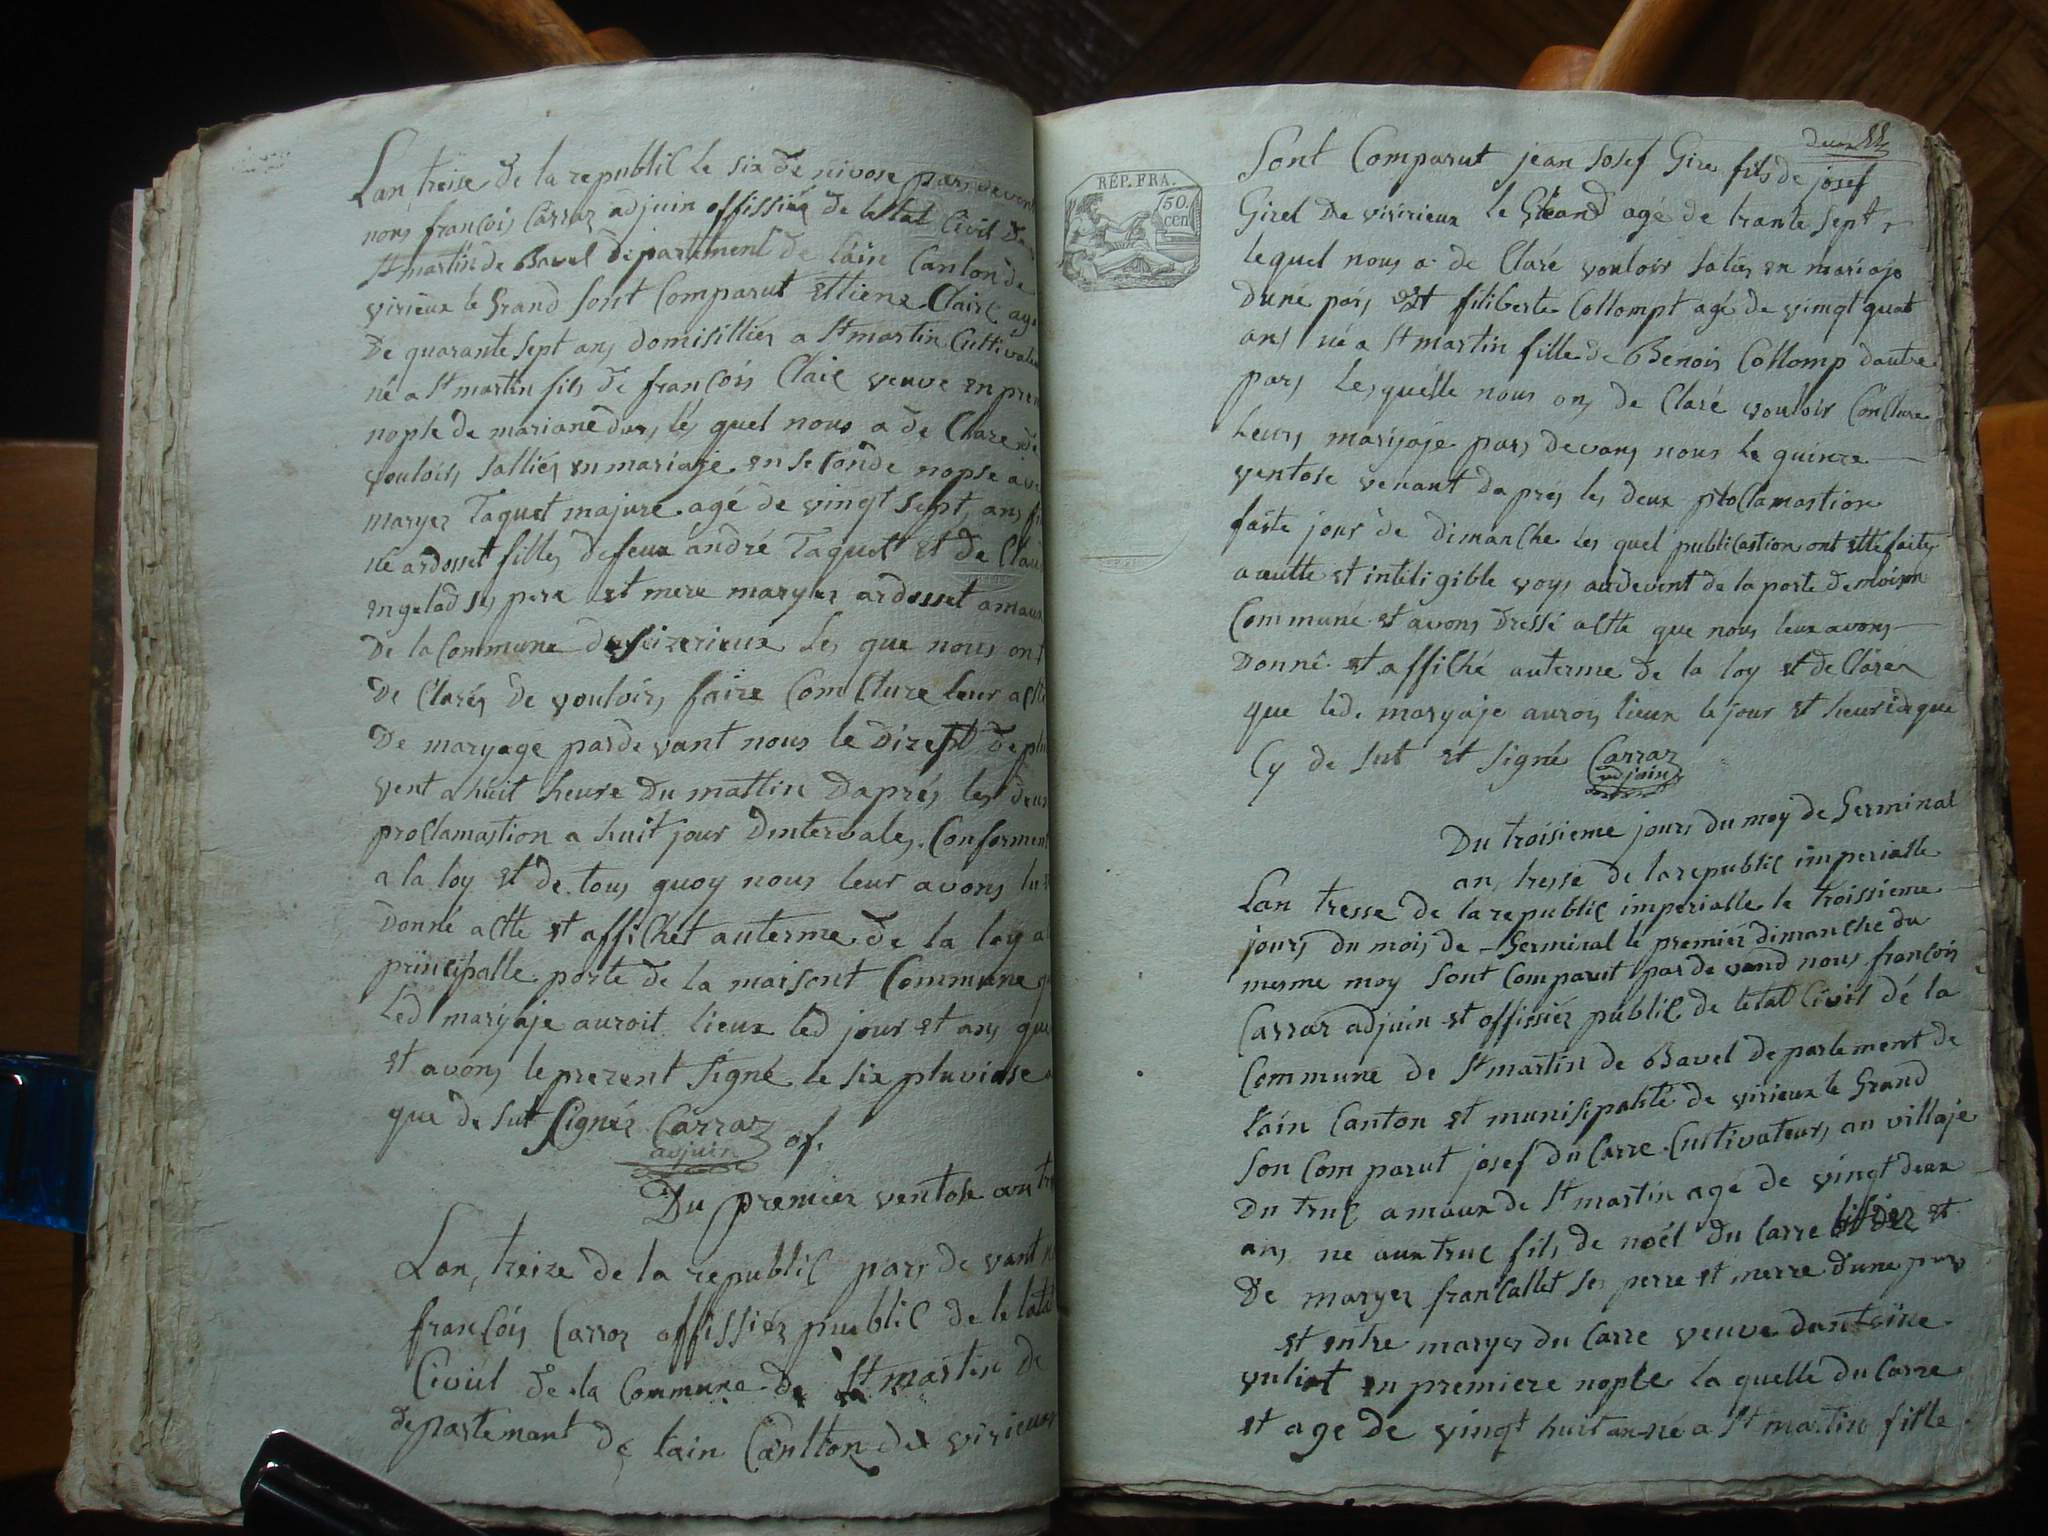 Lan, treise de la republic le six de nivose pars devent
nous francois Carraz adjuin offissiez de letat Civil de
St martin de Bavel departement de lain Canton de
virieux le Grand sont Comparut ettiene Claire age
de quarante sept ans domisilliez a St martin Cultivateu
né a St martin fils de francois Claie veuve en prem
nopse de mariane durs les quel nous a de Clare de
vouloirs salliez en mariaje en seconde nopse ave
maryez Taquet majure agé de vingt sept ans fi
né ardosset filles defeux andré Taquet et de Clau
engelas ses pere et mere maryez ardosset amaux
de la Commune de seizerieux les que nous ont
de Clarez de vouloirs faire Comclure leur acte
de maryage pardevant nous le dizept de plu
vent a huit heure du mattin daprés les deux
proclamastion a huit jour dintervales Conforment
a la loy et de tous quoy nous leur avons
donné actte et affichét auterme de la loy a
principalle porte de la maisont Commune q
led maryaje auroit lieux led jour et ans que
et avons le prezent signé le six pluviose
que de sut signéz Carraz
adjuin of.
Du premier ventose an tr
Lan, treize de la republic pars de vant
francois Carraz offissiéz puublic de letat
Civiil de la Commune de St martin de
departemant de lain Cantton de virieux
deux
RÉP. FRA.
50
cen
sont Comparut jean Josef Gire fils de josef
Girel de viririeux le Grand agé de trante sept
lequel nous a de Claré vouloir saliez en mariaje
dune pars et filiberte Collompt agé de vingt quat
ans né a St martin fille de Benois Collomp dautre
pars lesquélle nous ons de Claré vouloir Conclure
leurs maryaje pars devans nous le quinze
ventose venant daprés les deux proclamastion
faite jour de dimanche les quel publicastion ont etté faites
aautte et inteligible voys audevent de la porte de moison
Commune et avons dressé actte que nous leux avons
donné et affiché auterme de la loy et declarez
que led. maryaje auroy lieux le jour et heurideque
Cy de sut et signé Carraz
adjuin
Du troisieme jours du moy de Germinal
an tresse de la republic imperialle
Lan tresse de la republic imperialle le troissieme
jours du mois de Germinal le premiéz dimanche du
mesme moy sont comparut pardevand nous francois
Carraz adjuin et offissiéz public de letat Civil dé la
Commune de St martin de Bavel departement de
lain Canton et munisipalité de virieux le Grand
son Comparut josef du Carre Cultivateurs au villaje
du truc amaux de St martin agé de vingt deux
ans ne aux truc fils de noél du Carre et
de maryez francallet ses perre et merre dune pars
et entre maryez du Carre veuve dantoine
vuliet en premiere nopse la quelle du Carre
et age de vingt huit an né a St martin fille